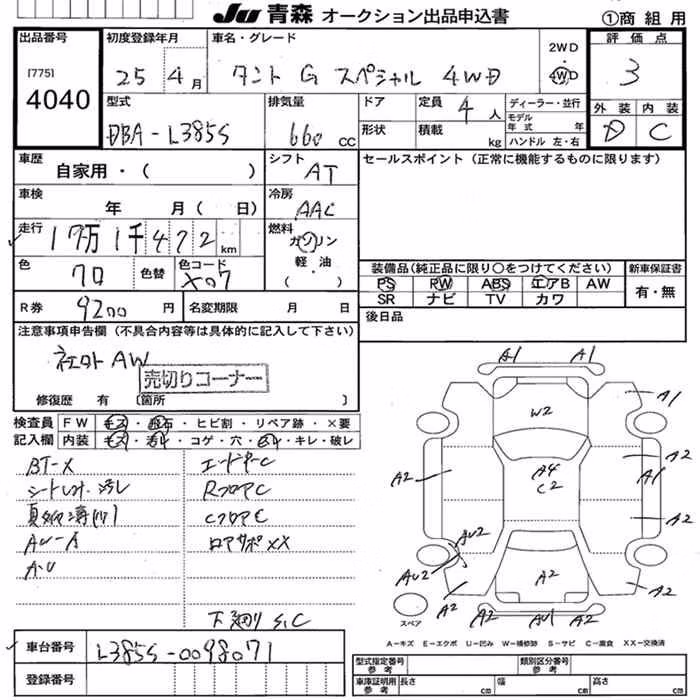 JU 青森 オークション出品申込書 ①商組用
出品番号 初度登録年月 車名・グレード 2WD 評価点
[775] 25 4月 タント G スペシャル 4WD 4WD 3
4040
型式 排気量 ドア 定員 4人 ディーラー・並行 外装 内装
DBA-L385S 660cc 形状 積載 kg モデル年式 年 D C
ハンドル 左・右
車歴 自家用・( ) シフト AT セールスポイント (正常に機能するものに限ります)
車検 年 月( 日) 冷房 AAC
走行 17万1千472km 燃料 ガソリン
軽・油
( )
色 クロ 色替 色コード X07 装備品(純正品に限り○をつけてください) 新車保証書
PS PW ABS エアB AW 有・無
SR ナビ TV カワ
R券 9200円 名変期限 月 日 後日品
注意事項申告欄 (不具合内容等は具体的に記入して下さい)
社外 AW
売切りコーナー
修復歴 有 〔箇所 〕
検査員 FW キズ・飛石・ヒビ割・リペア跡・×要
記入欄 内装 キズ・汚レ・コゲ・穴・スレ・キレ・破レ
BT-X エンドキーC
シートレール・汚レ RフロアC
CフロアC
AU-A ロアサポXX
A-U
下廻り S.C
A1 A1
W2 A1
A2 A4 A1 A2
C2 A2
AU2
AU2 A2 A2
A2 AU1 A2
スペア
A-キズ E-エクボ U-凹み W-補修跡 S-サビ C-腐食 XX-交換済
車台番号 L385S-0098071
登録番号
型式指定番号 参考 類別区分番号 参考
車庫証明用 参考 長さ cm 幅 cm 高さ cm